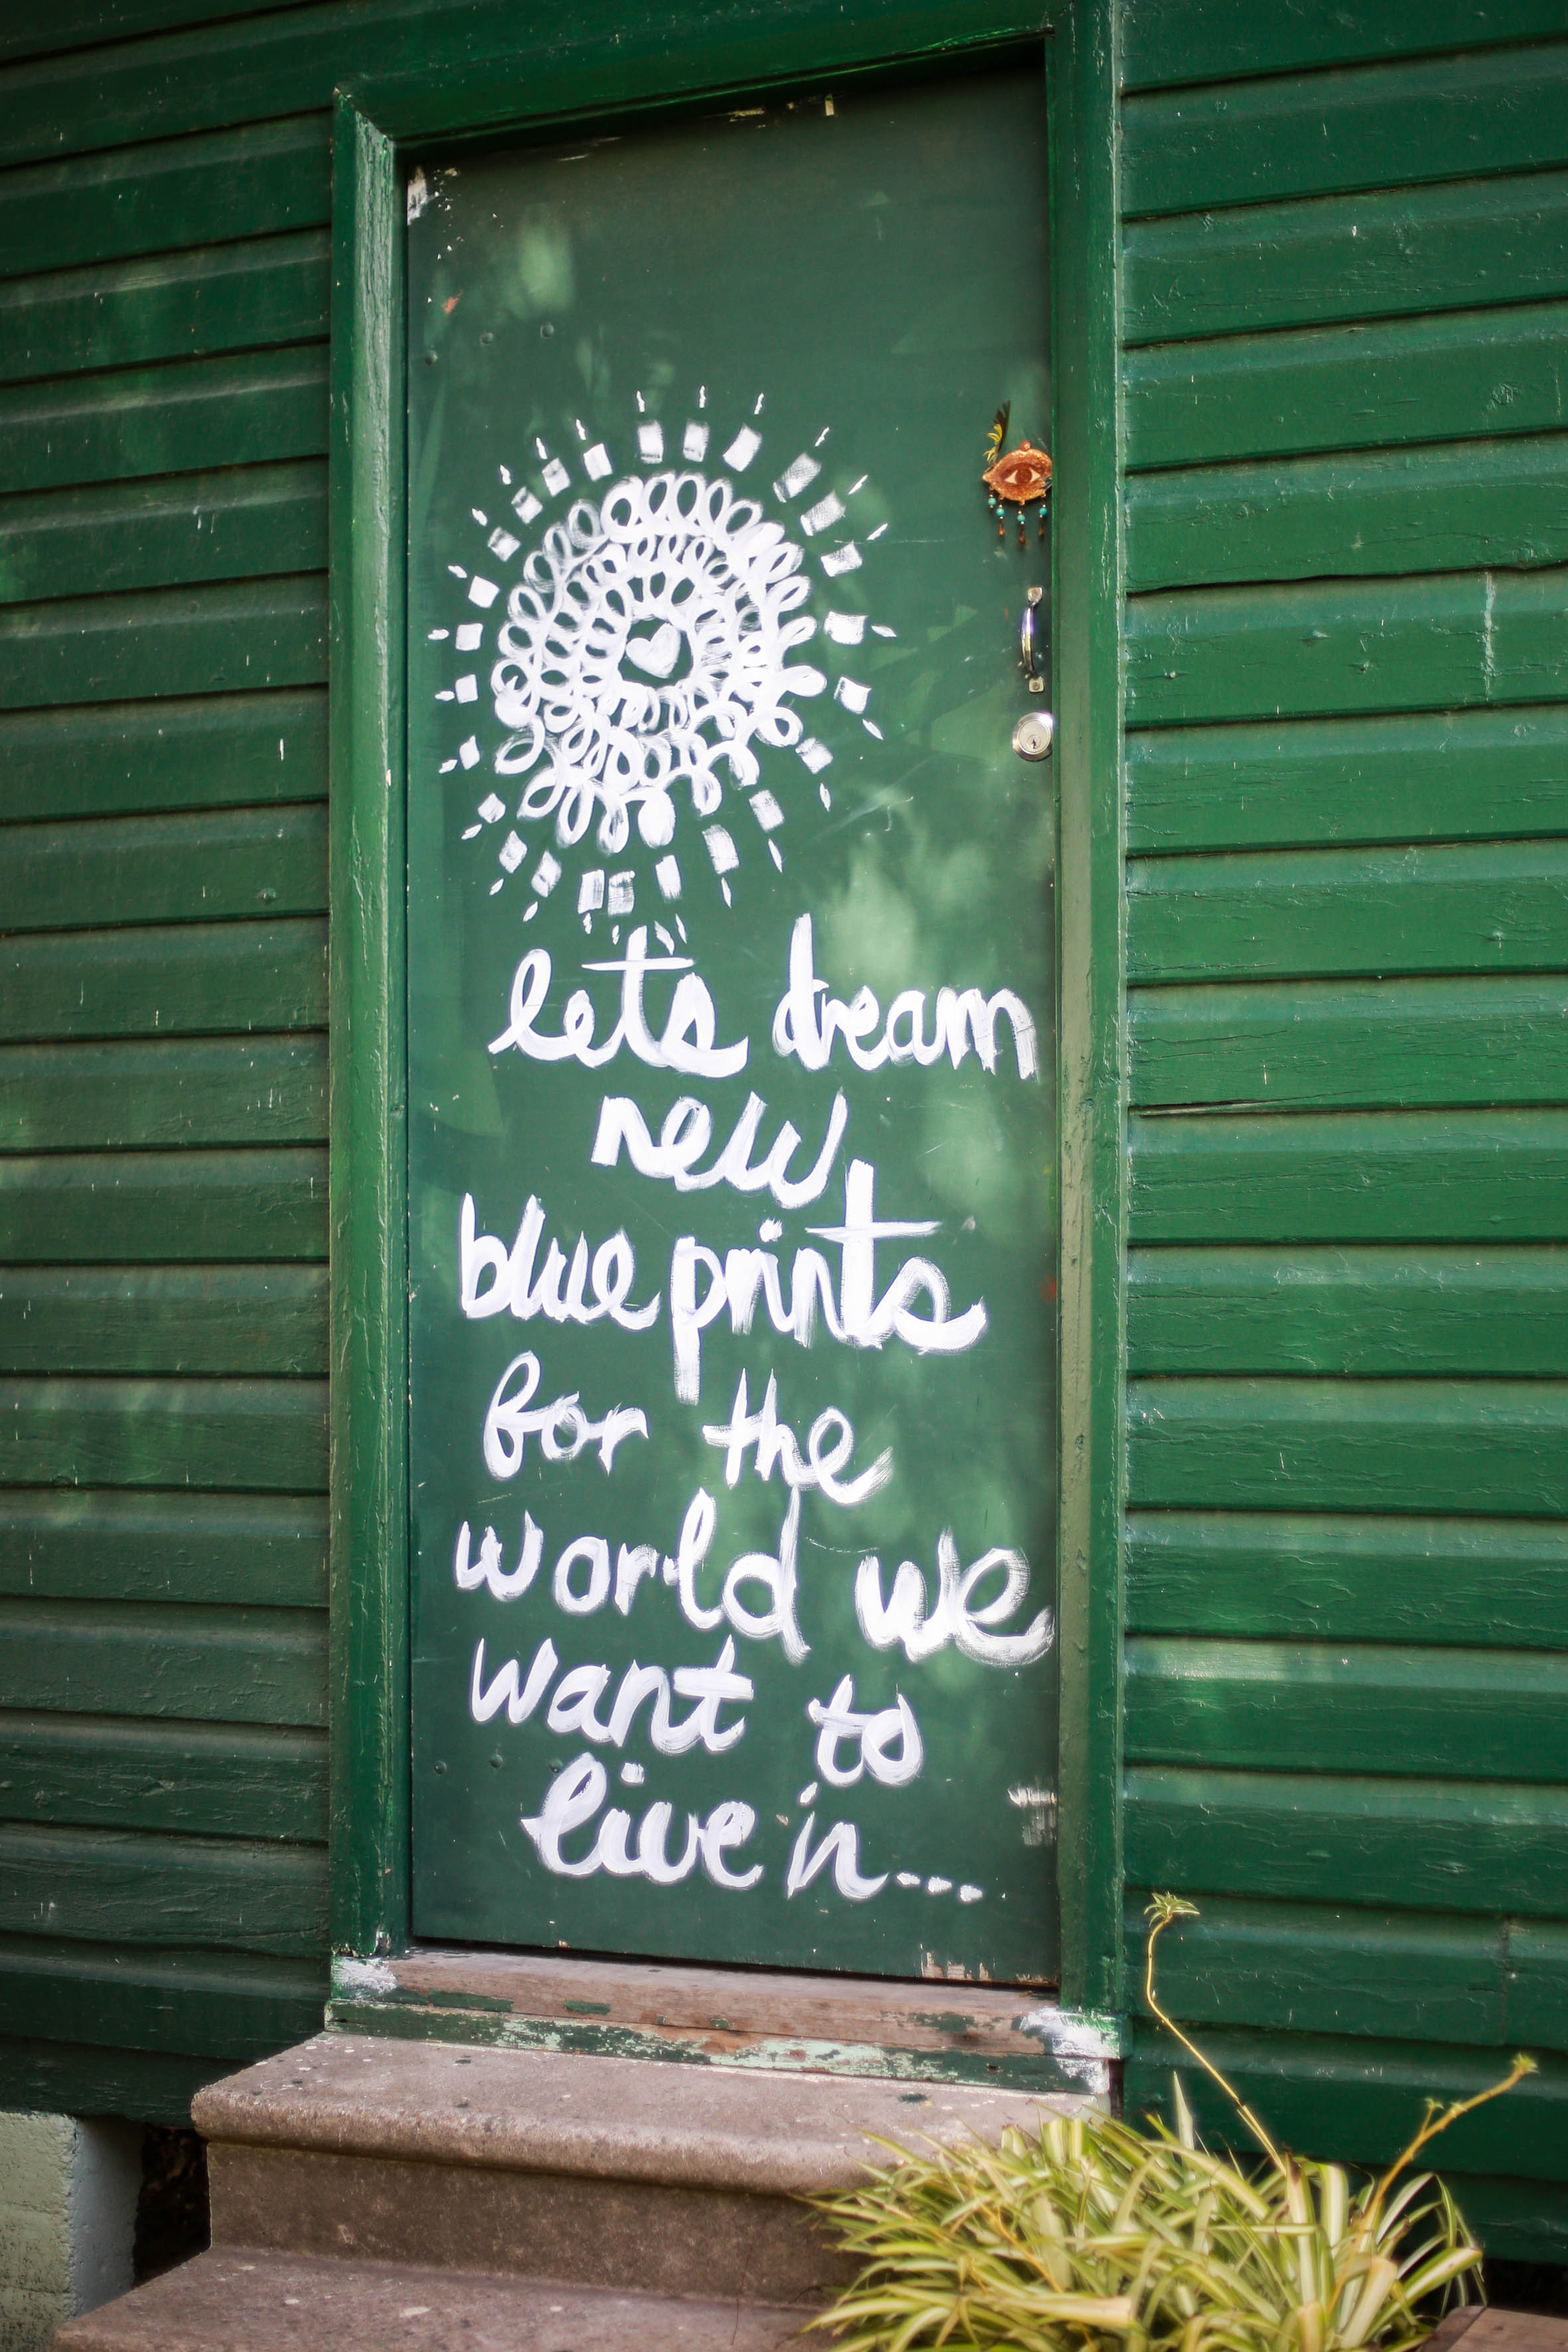 let's dream
new
blue prints
for the
world we
want to
live in...